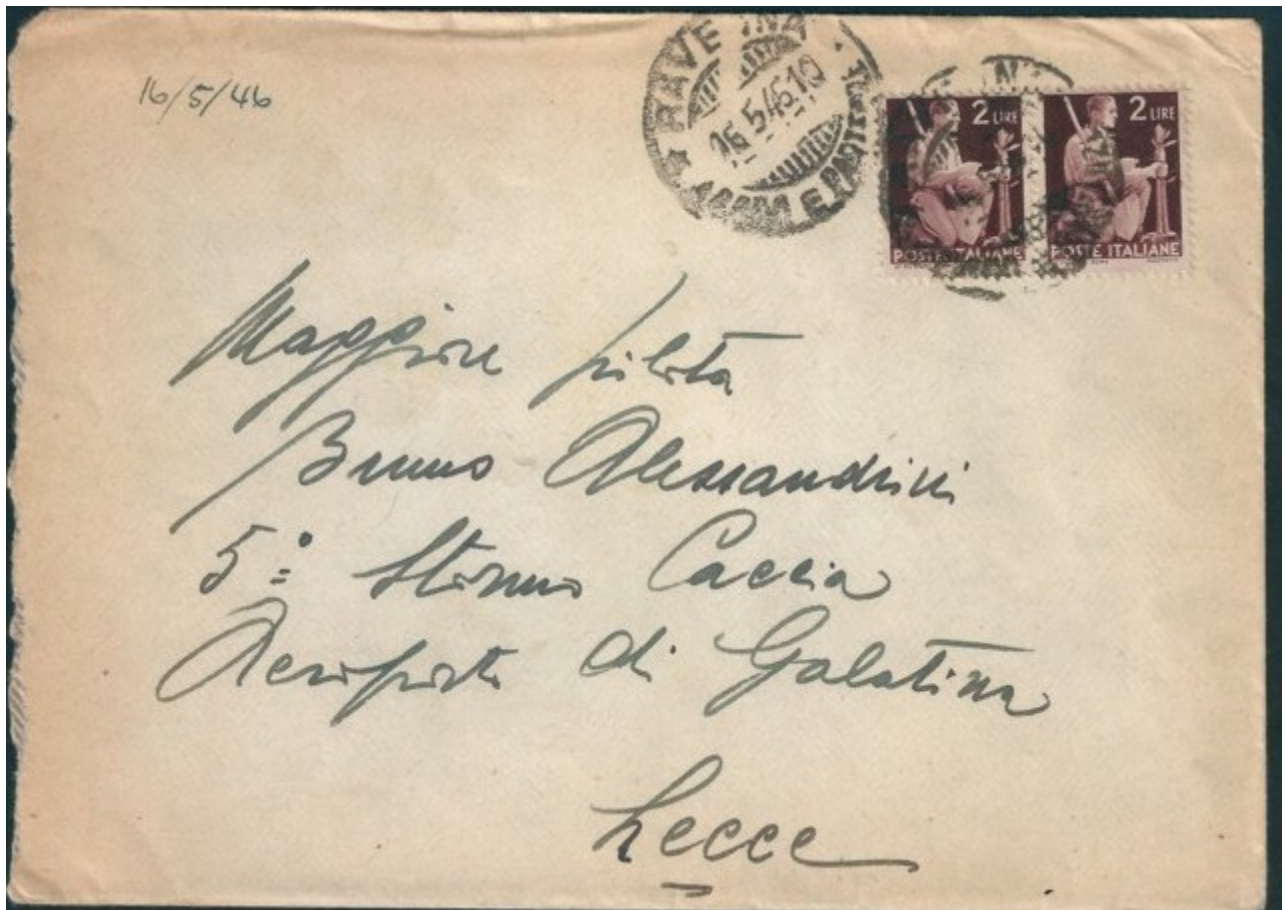 16/5/46
RAVENNA
16.5.46.10
ARRIVI E PARTENZE
2 LIRE
2 LIRE
POSTE ITALIANE
POSTE ITALIANE
Maggiore pilota
Bruno Alessandrini
5º Stormo Caccia
Aeroporto di Galatina
Lecce